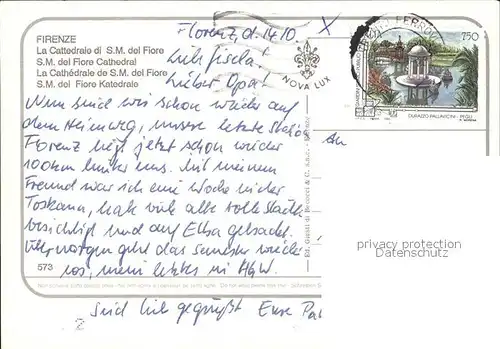 FIRENZE
La Cattedrale di S.M. del Fiore
S.M. del Fiore Cathedral
La Cathédrale de S.M. del Fiore
S.M. del Fiore Katedrale
Florenz, d. 14.10.
X
Liebe
Lieber Opa!
Nun sind wir schon wieder auf
dem Heimweg, unsere letzte Station
Florenz liegt jetzt schon wieder
100 km hinter uns. Mit meinem
Freund war ich eine Woche in der
Toskana, habe viele alte tolle Städte
besichtigt und auf Elba gebadet.
Übermorgen geht das Semester wieder
los, mein letztes in
Seid lieb gegrüßt Eure
573
NOVA LUX
750
DURAZZO PALLAVICINI - PEGLI
An
privacy protection
Datenschutz